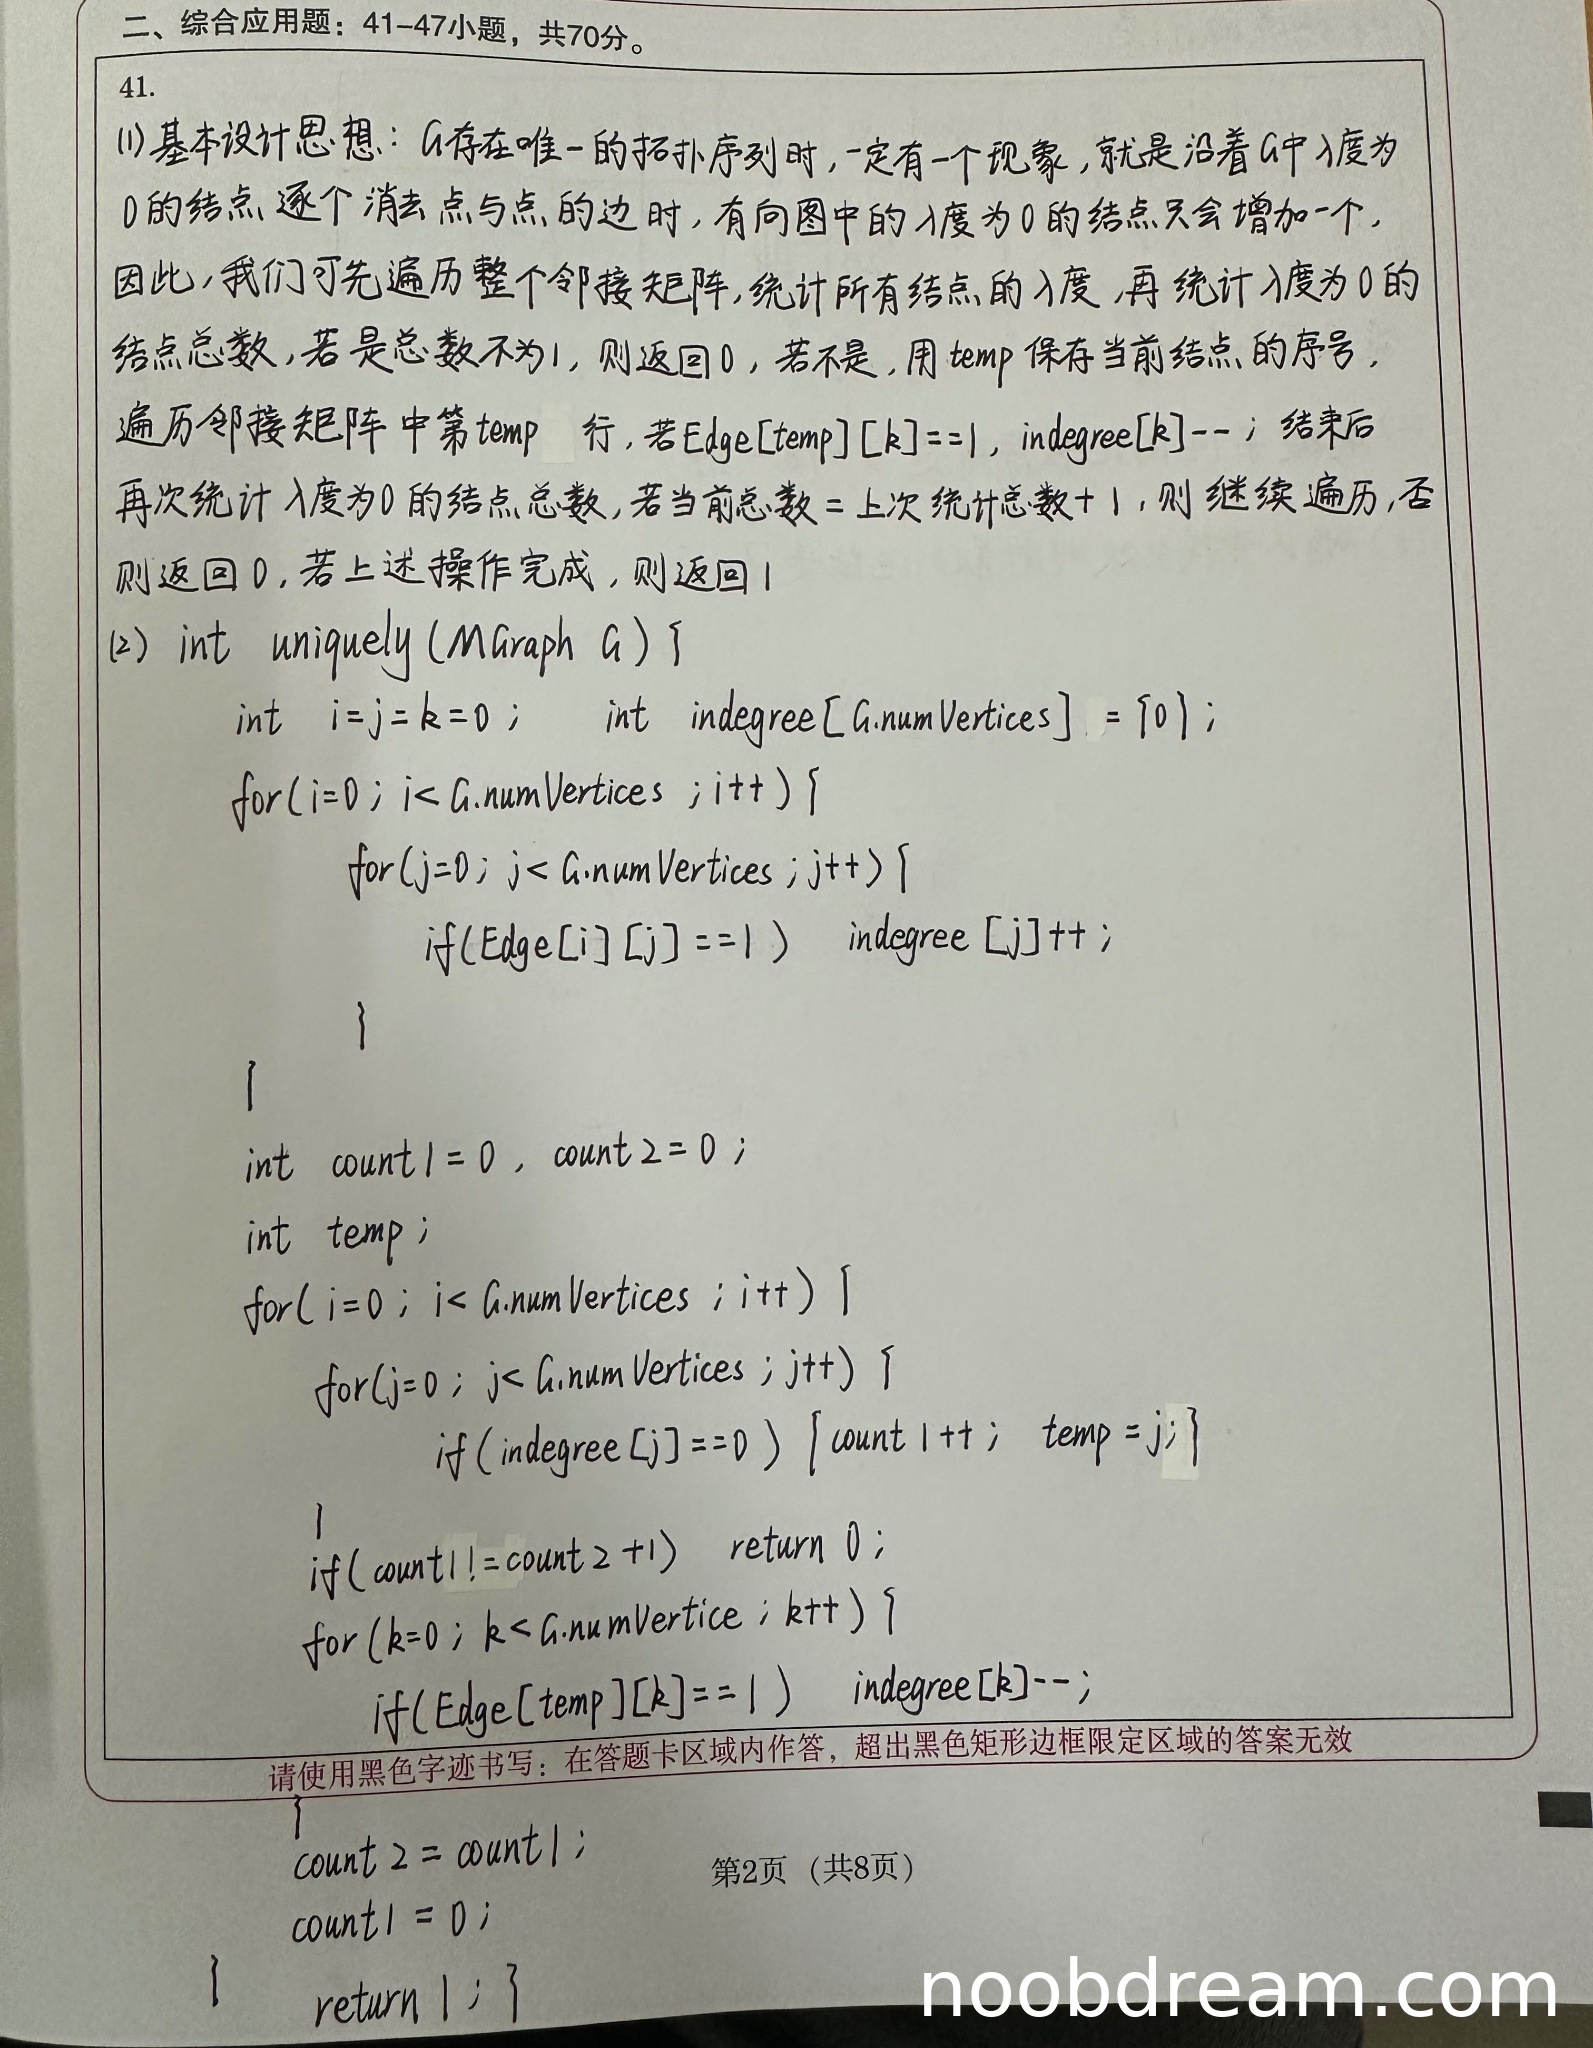 二、综合应用题：41-47小题，共70分。
41.
(1)基本设计思想：G存在唯一的拓扑序列时，一定有一个现象，就是沿着G中入度为
0的结点逐个消去点与点的边时，有向图中的入度为0的结点只会增加一个，
因此，我们可先遍历整个邻接矩阵，统计所有结点的入度，再统计入度为0的
结点总数，若是总数不为1，则返回0，若不是，用temp保存当前结点的序号，
遍历邻接矩阵中第temp 行，若Edge[temp][k]==1, indegree[k]--；结束后
再次统计入度为0的结点总数，若当前总数=上次统计总数+1，则继续遍历，否
则返回0，若上述操作完成，则返回1
(2) int uniquely(MGraph G){
int i=j=k=0; int indegree[G.numVertices] ={0};
for(i=0; i<G.numVertices ;i++){
for(j=0; j<G.numVertices ;j++){
if(Edge[i][j]==1) indegree[j]++;
}
}
int count1=0, count2=0;
int temp;
for(i=0; i<G.numVertices ;i++){
for(j=0; j<G.numVertices ;j++){
if(indegree[j]==0){count1++; temp=j;}
}
if(count1!=count2+1) return 0;
for(k=0; k<G.numVertice ;k++){
if(Edge[temp][k]==1) indegree[k]--;
请使用黑色字迹书写：在答题卡区域内作答，超出黑色矩形边框限定区域的答案无效
}
count2=count1;
第2页（共8页）
count1=0;
}
return 1;}
noobdream.com